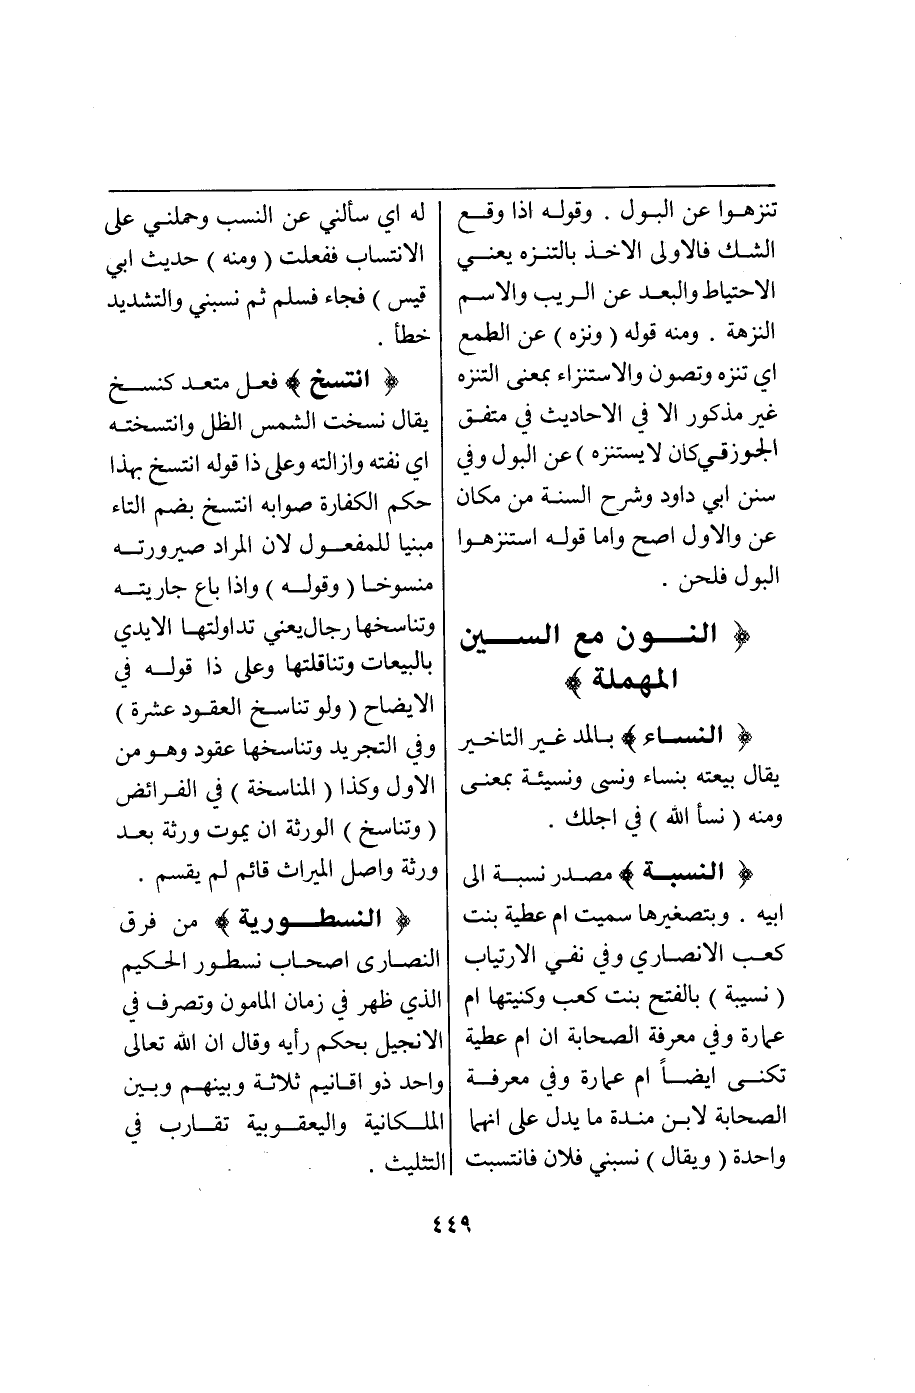 تنزهوا عن البول . وقوله اذا وقع
الشك فالاولى الاخذ بالتنزه يعني
الاحتياط والبعد عن الريب والاسم
النزهة . ومنه قوله ( ونزه ) عن الطمع
اي تنزه وتصون والاستنزاء بمعنى التنزه
غير مذكور الا في الاحاديث في متفق
الجوزقي كان لايستنزه ) عن البول وفي
سنن ابي داود وشرح السنة من مكان
عن والاول اصح واما قوله استنزهوا
البول فلحن .
﴿ النون مع السين
المهملة ﴾
﴿ النساء ﴾ بالمد غير التاخير
يقال بيعته بنساء ونسى ونسيئة بمعنى
ومنه ( نسأ الله ) في اجلك .
﴿ النسبة ﴾ مصدر نسبة الى
ابيه . وبتصغيرها سميت ام عطية بنت
كعب الانصاري وفي نفي الارتياب
( نسيبة ) بالفتح بنت كعب وكنيتها ام
عمارة وفي معرفة الصحابة ان ام عطية
تكنى ايضاً ام عمارة وفي معرفة
الصحابة لابن مندة ما يدل على انها
واحدة ( ويقال ) نسبني فلان فانتسبت
له اي سألني عن النسب وحملني على
الانتساب ففعلت ( ومنه ) حديث ابي
قيس ) فجاء فسلم ثم نسبني والتشديد
خطأ .
﴿ انتسخ ﴾ فعل متعد كنسخ
يقال نسخت الشمس الظل وانتسخته
اي نفته وازالته وعلى ذا قوله انتسخ بهذا
حكم الكفارة صوابه انتسخ بضم التاء
مبنيا للمفعول لان المراد صيرورته
منسوخا ( وقوله ) واذا باع جاريته
وتناسخها رجال يعني تداولتها الايدي
بالبيعات وتناقلتها وعلى ذا قوله في
الايضاح ( ولو تناسخ العقود عشرة )
وفي التجريد وتناسخها عقود وهو من
الاول وكذا ( المناسخة ) في الفرائض
( وتناسخ ) الورثة ان يموت ورثة بعد
ورثة واصل الميراث قائم لم يقسم .
﴿ النسطورية ﴾ من فرق
النصارى اصحاب نسطور الحكيم
الذي ظهر في زمان المامون وتصرف في
الانجيل بحكم رأيه وقال ان الله تعالى
واحد ذو اقانيم ثلاثة وبينهم وبين
الملكانية واليعقوبية تقارب في
التثليث .
٤٤٩